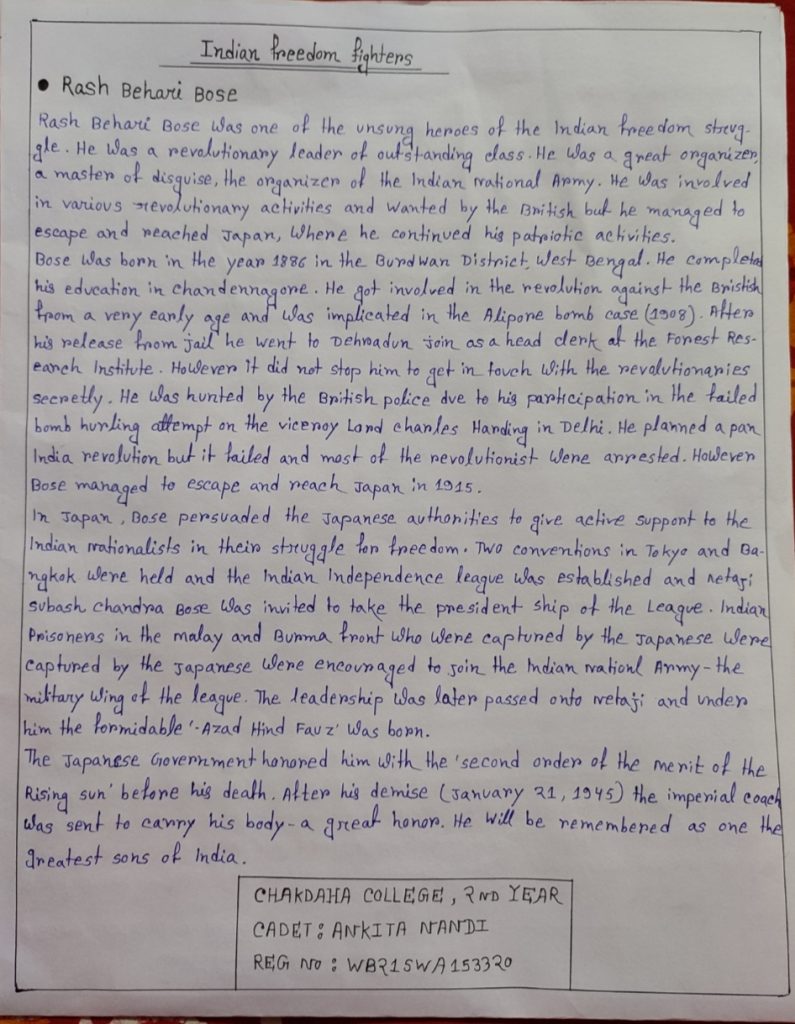 Indian freedom fighters
• Rash Behari Bose
Rash Behari Bose was one of the unsung heroes of the Indian freedom strug-
gle. He was a revolutionary leader of outstanding class. He was a great organizer,
a master of disguise, the organizer of the Indian National Army. He was involved
in various revolutionary activities and wanted by the British but he managed to
escape and reached Japan, where he continued his patriotic activities.
Bose was born in the year 1886 in the Burdwan District, West Bengal. He completed
his education in Chandennagore. He got involved in the revolution against the Bristish
from a very early age and was implicated in the Alipore bomb case (1908). After
his release from jail he went to Dehradun join as a head clerk at the Forest Res-
earch Institute. However it did not stop him to get in touch with the revolutionaries
secretly. He was hunted by the British police due to his participation in the failed
bomb hurling attempt on the viceroy Lord charles Harding in Delhi. He planned a pan
India revolution but it failed and most of the revolutionist were arrested. However
Bose managed to escape and reach Japan in 1915.
In Japan, Bose persuaded the Japanese authorities to give active support to the
Indian nationalists in their struggle for freedom. Two conventions in Tokyo and Ba-
ngkok were held and the Indian Independence league was established and netaji
subash chandra Bose was invited to take the president ship of the League. Indian
Prisoners in the malay and Burma front who were captured by the Japanese were
captured by the Japanese were encouraged to join the Indian nationl Army - the
military wing of the league. The leadership was later passed onto netaji and under
him the formidable '-Azad Hind Fauz' was born.
The Japanese Government honored him with the 'second order of the merit of the
Rising sun' before his death. After his demise (January 21, 1945) the imperial coach
was sent to carry his body - a great honor. He will be remembered as one the
greatest sons of India.
CHAKDAHA COLLEGE, 2ND YEAR
CADET: ANKITA NANDI
REG NO: WB21SWA153320